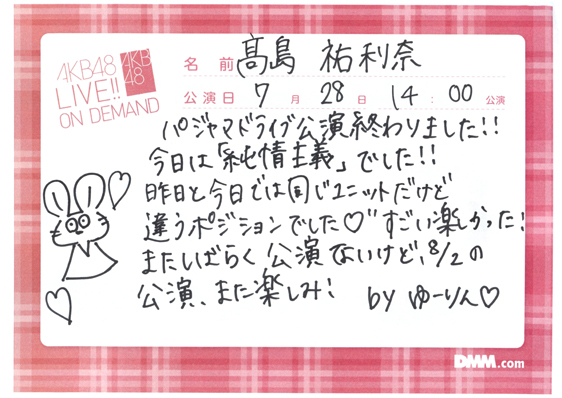 AKB48
LIVE!!
ON DEMAND
AKB
48
名前 髙島 祐利奈
公演日 7月28日 14:00公演
パジャマドライブ公演終わりました!!
今日は「純情主義」でした!!
昨日と今日では同じユニットだけど
違うポジションでした♡すごい楽しかった!
またしばらく公演ないけど、8/2の
公演、また楽しみ! by ゆーりん♡
DMM.com